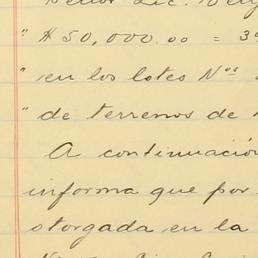 Señor Lic. 
" $ 50,000.00 = 3
" en los lotes Nos
" de terrenos de
A continuación
informa que por
otorgada en la